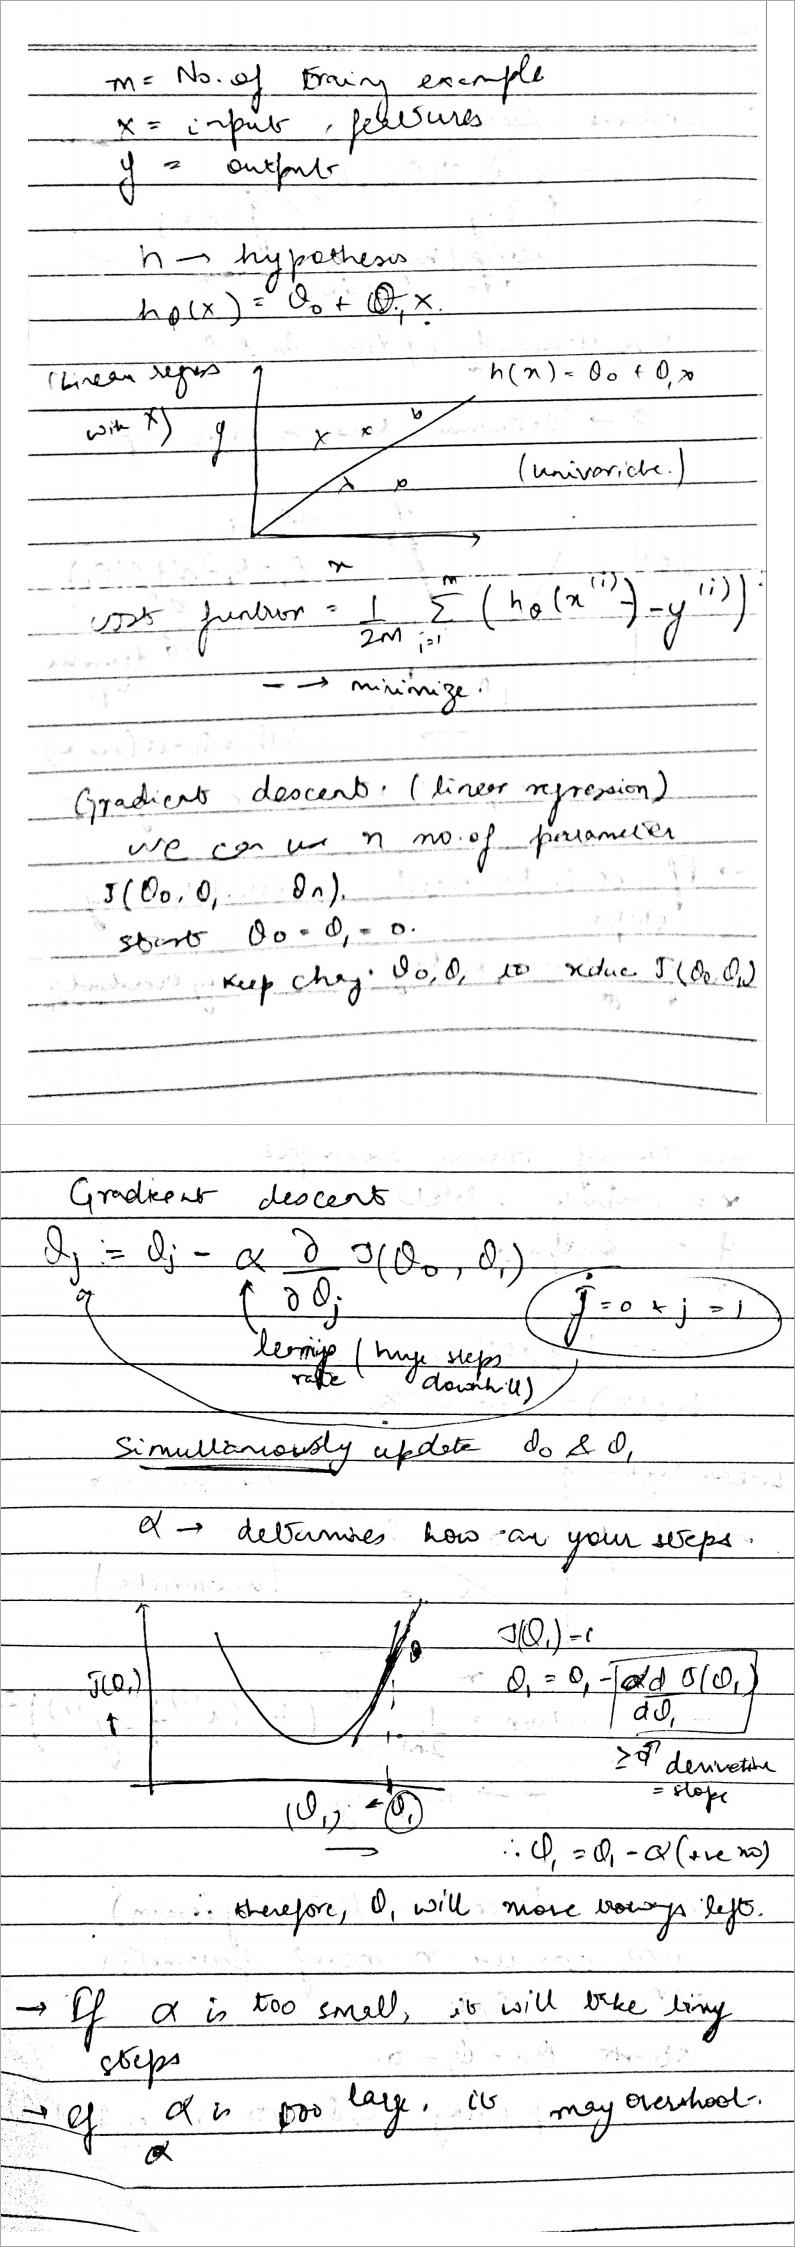 m = No. of training example
x = input, features
y = output
h → hypothesis
hθ(x) = θ₀ + θ₁x.
(Linear regrss with x)
y
h(x) = θ₀ + θ₁x
(univariate.)
x
cost function = 1/2M Σ i=1 m (hθ(x⁽ⁱ⁾) - y⁽ⁱ⁾)
--→ minimize.
Gradient descent. (linear regression)
we can use n no. of parameter
J(θ₀, θ₁ θn).
start θ₀ = θ₁ = 0.
keep chag. θ₀, θ₁ to reduce J(θ₀ θ₁)
Gradient descent
θj := θj - α ∂/∂θj J(θ₀, θ₁)
j = 0 & j = 1
learning rate (huge steps downhill)
Simultaneously update θ₀ & θ₁
α → determines how are your steps.
J(θ₁)
J(θ₁)
θ₁ = θ₁ - α d/dθ₁ J(θ₁)
≥ 0 derivative = slope
(θ₁) ← θ₁
∴ θ₁ = θ₁ - α (+ve no)
∴ therefore, θ₁ will move towags left.
→ If α is too small, it will take tiny
steps
→ If α is too large, it may overshoot.
α